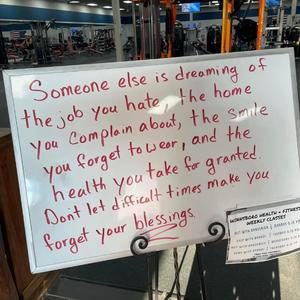 Someone else is dreaming of
the job you hate, the home
you complain about, the smile
you forget to wear, and the
health you take for granted.
Don't let difficult times make you
forget your blessings.
WINNSBORO HEALTH & FITNESS
WEEKLY CLASSES